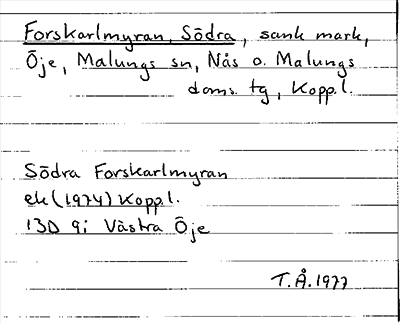 Forskarlmyran, Södra, sank mark,
Öje, Malungs sn, Nås o. Malungs
doms. tg, Koppl.
Södra Forskarlmyran
ek (1974) Koppl.
13D 9i Västra Öje
T.Å.1977